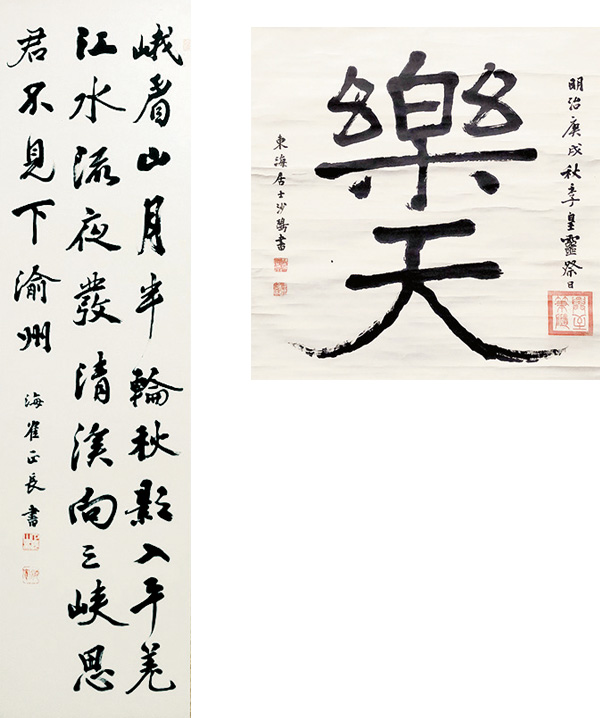 峨眉山月半輪秋影入平羌
江水流夜發清溪向三峽思
君不見下渝州
海崔正長書
明治庚戌秋季皇靈祭日
樂天
東海居士沙鷗書